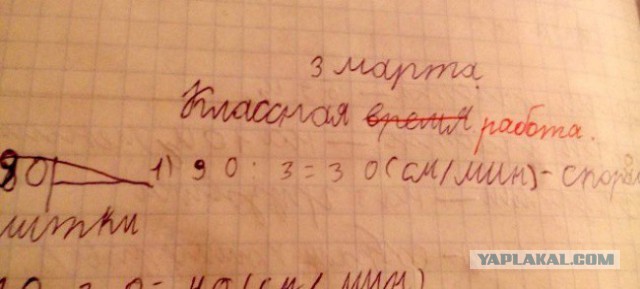 3 марта.
Классная время работа.
90 1) 90 : 3 = 30 (см/мин) -
литки
YAPLAKAL.COM